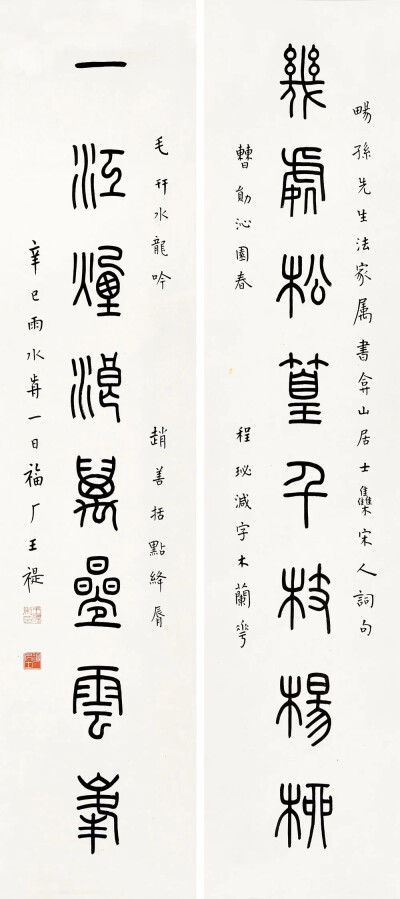 畼孫先生法家属書弇山居士集宋人詞句
幾處松篁千枝楊柳
曹勛沁園春 程珌減字木蘭花
毛幵水龍吟 趙善括點絳脣
一江煙浪萬疊雲峯
辛巳雨水歬一日福厂王禔